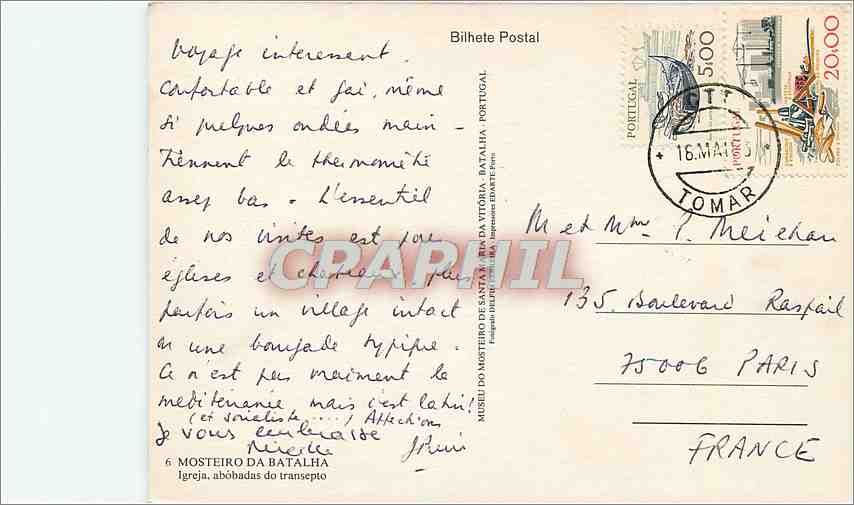 Bilhete Postal
Voyage interessant.
Confortable et gai, même
si quelques ondées main-
tiennent le thermomètre
assez bas. L'essentiel
de nos visites est pour
églises et chateaux, plus
parfois un village intact
ou une bourgade typique.
Ce n'est pas vraiment la
mediteranée mais c'est latin!
(et socialiste ....) Affections
Je vous embrasse
Mireille
6 MOSTEIRO DA BATALHA
Igreja, abóbadas do transepto
MUSEU DO MOSTEIRO DE SANTA MARIA DA VITÓRIA - BATALHA - PORTUGAL
Fotografia DELFIM FERREIRA - Impressores EDARTE-Porto
PORTUGAL
5,00
PORTUGAL
20,00
CTT
16.MAI
TOMAR
M et Mme P. Meichan
135, Boulevard Raspail
75006 PARIS
FRANCE
CPAPHIL